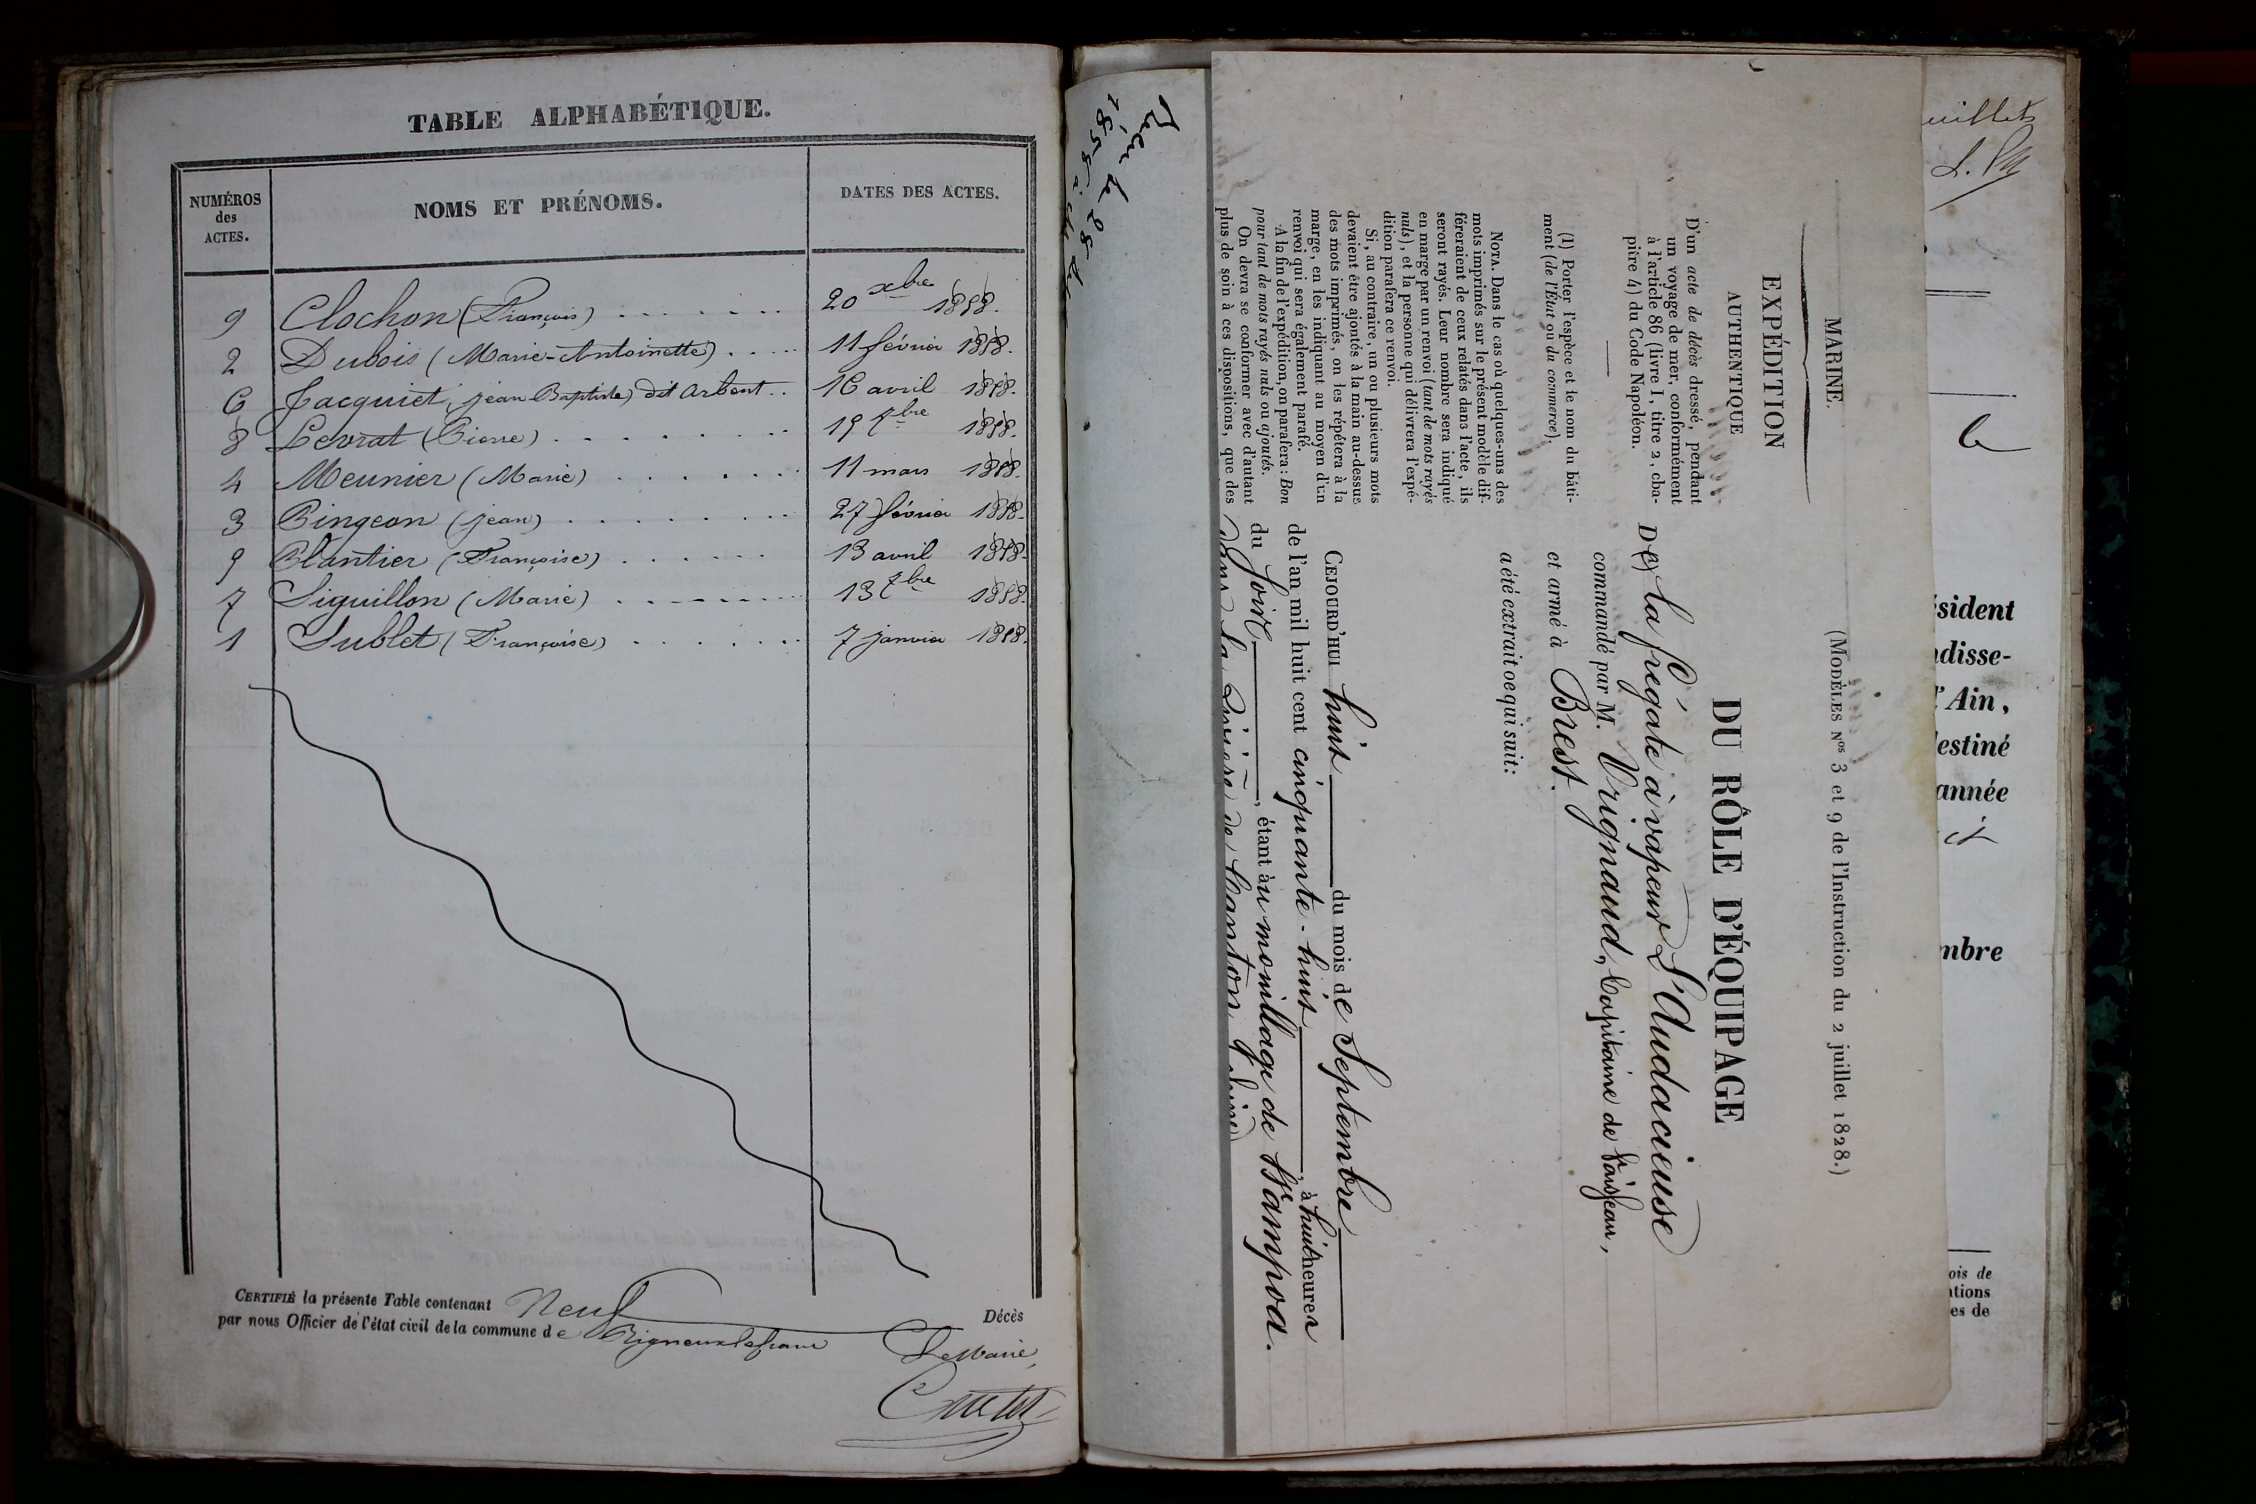 TABLE ALPHABÉTIQUE.
NUMÉROS des ACTES. NOMS ET PRÉNOMS. DATES DES ACTES.
9 Clochon (François) . . . . . . . 20 xbre 1858.
2 Dubois (Marie-Antoinette) . . . . 11 février 1858.
6 Jacquiet, jean Baptiste) dit arbent . . 16 avril 1858.
8 Levrat (Pierre) . . . . . . . . . 19 7bre 1858.
4 Meunier (Marie) . . . . . . 11 mars 1858.
3 Pingeon (jean) . . . . . . . . 27 février 1858.
Plantier (Françoise) . . . . . . 13 avril 1858.
7 Siguillon (Marie) . . . . . . . 13 7bre 1858.
1 Sublet (Françoise) . . . . . . . 7 janvier 1858.
CERTIFIÉ la présente Table contenant Neuf Décès
par nous Officier de l'état civil de la commune de Rigneux le franc
Le Maire,
MARINE.
(MODÈLES Nos 3 et 9 de l'Instruction du 2 juillet 1828.)
EXPÉDITION
AUTHENTIQUE
D'un acte de décès dressé, pendant
un voyage de mer, conformément
à l'article 86 (livre I, titre 2, cha-
pitre 4) du Code Napoléon.
(1) Porter l'espèce et le nom du bâti-
ment (de l'État ou du commerce).
NOTA. Dans le cas où quelques-uns des
mots imprimés sur le présent modèle dif-
féreraient de ceux relatés dans l'acte, ils
seront rayés. Leur nombre sera indiqué
en marge par un renvoi (tant de mots rayés
nuls), et la personne qui délivrera l'expé-
dition parafera ce renvoi.
Si, au contraire, un ou plusieurs mots
devaient être ajoutés à la main au-dessus
des mots imprimés, on les répétera à la
marge, en les indiquant au moyen d'un
renvoi qui sera également parafé.
A la fin de l'expédition, on parafera: Bon
pour tant de mots rayés nuls ou ajoutés.
On devra se conformer avec d'autant
plus de soin à ces dispositions, que des
DU RÔLE D'ÉQUIPAGE
De la frégate à vapeur L'Audacieuse
commandé par M. Vrignaud, Capitaine de Vaisseau,
et armé à Brest.
a été extrait ce qui suit:
CEJOURD'HUI huit du mois de Septembre
de l'an mil huit cent cinquante-huit, à huit heures
du soir, étant au mouillage de Wampoa.
dans la rivière de Canton (Chine)
uillets
le
ésident
ndisse-
l'Ain,
destiné
année
mbre
ois de
ations
es de